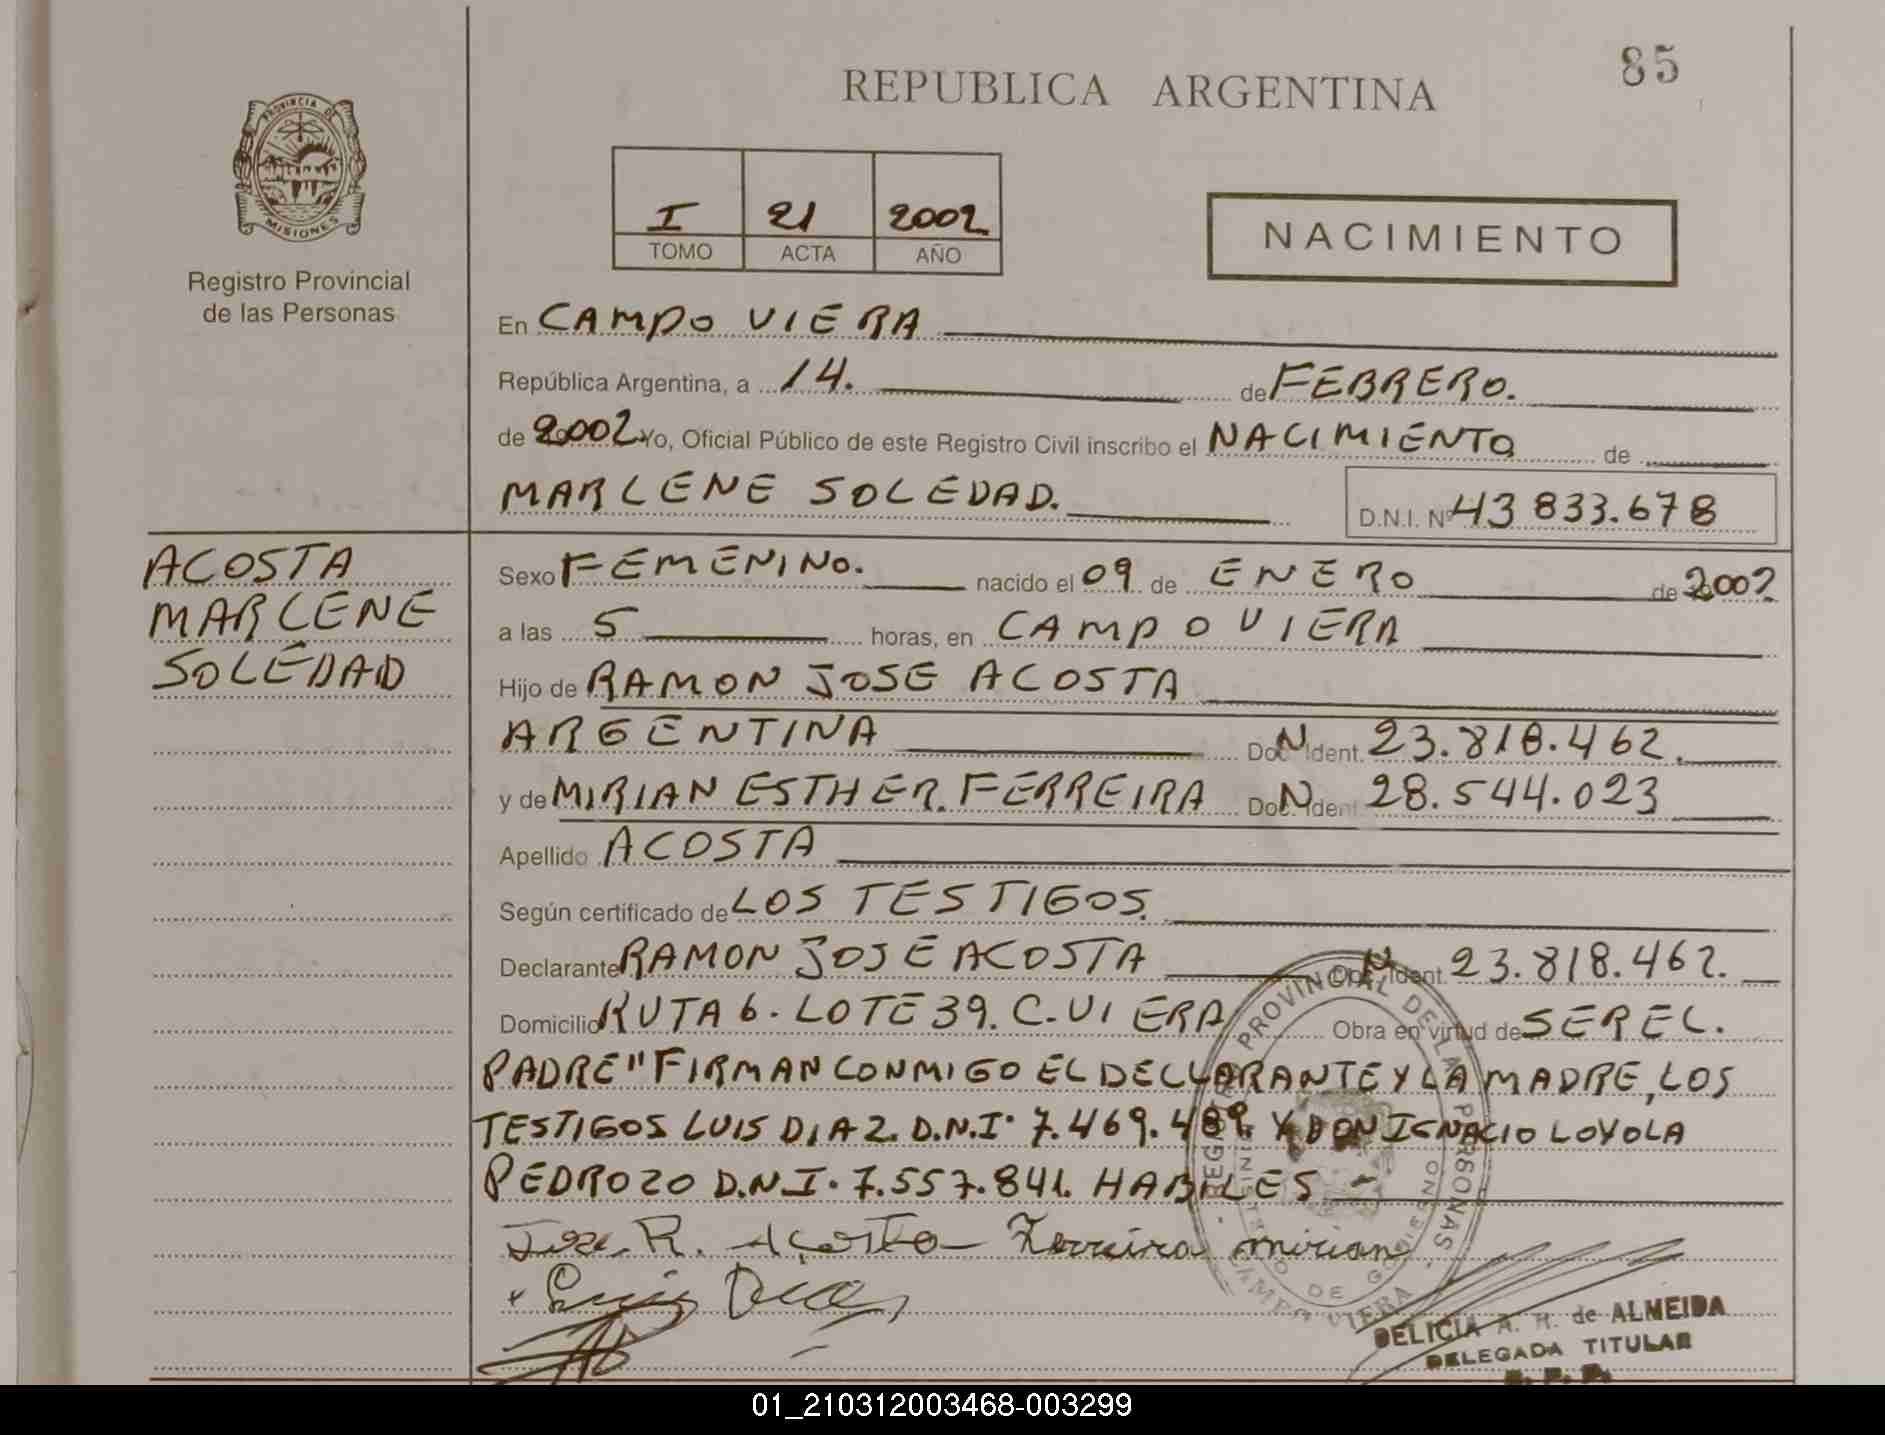 85
REPUBLICA ARGENTINA
PROVINCIA DE
MISIONES
Registro Provincial
de las Personas
I 21 2002
TOMO ACTA AÑO
NACIMIENTO
En CAMPO VIERA
República Argentina, a 14. de FEBRERO.
de 2002 Yo, Oficial Público de este Registro Civil inscribo el NACIMIENTO de
MARLENE SOLEDAD.
D.N.I. Nº 43 833.678
ACOSTA
MARLENE
SOLEDAD
Sexo FEMENINO. nacido el 09 de ENERO de 2002
a las 5 horas, en CAMPO VIERA
Hijo de RAMON JOSE ACOSTA
ARGENTINA Doc. N Ident. 23.818.462.
y de MIRIAN ESTHER. FERREIRA Doc. N Ident. 28.544.023
Apellido ACOSTA
Según certificado de LOS TESTIGOS.
Declarante RAMON JOSE ACOSTA Doc. N Ident. 23.818.462.
Domicilio RUTA 6. LOTE 39. C. VIERA Obra en virtud de SER EL.
PADRE" FIRMAN CONMIGO EL DECLARANTE Y LA MADRE, LOS
TESTIGOS LUIS DIAZ. D.N.I. 7.469.489. Y DON IGNACIO LOYOLA
PEDROZO D.N.I. 7.557.841. HABILES -
Jose R. Acosta Ferreira mirian
Luis Diaz
REGISTRO PROVINCIAL DE LAS PERSONAS
MINISTERIO DE GOBIERNO
CAMPO VIERA
DELICIA A. H. de ALMEIDA
DELEGADA TITULAR
01_210312003468-003299